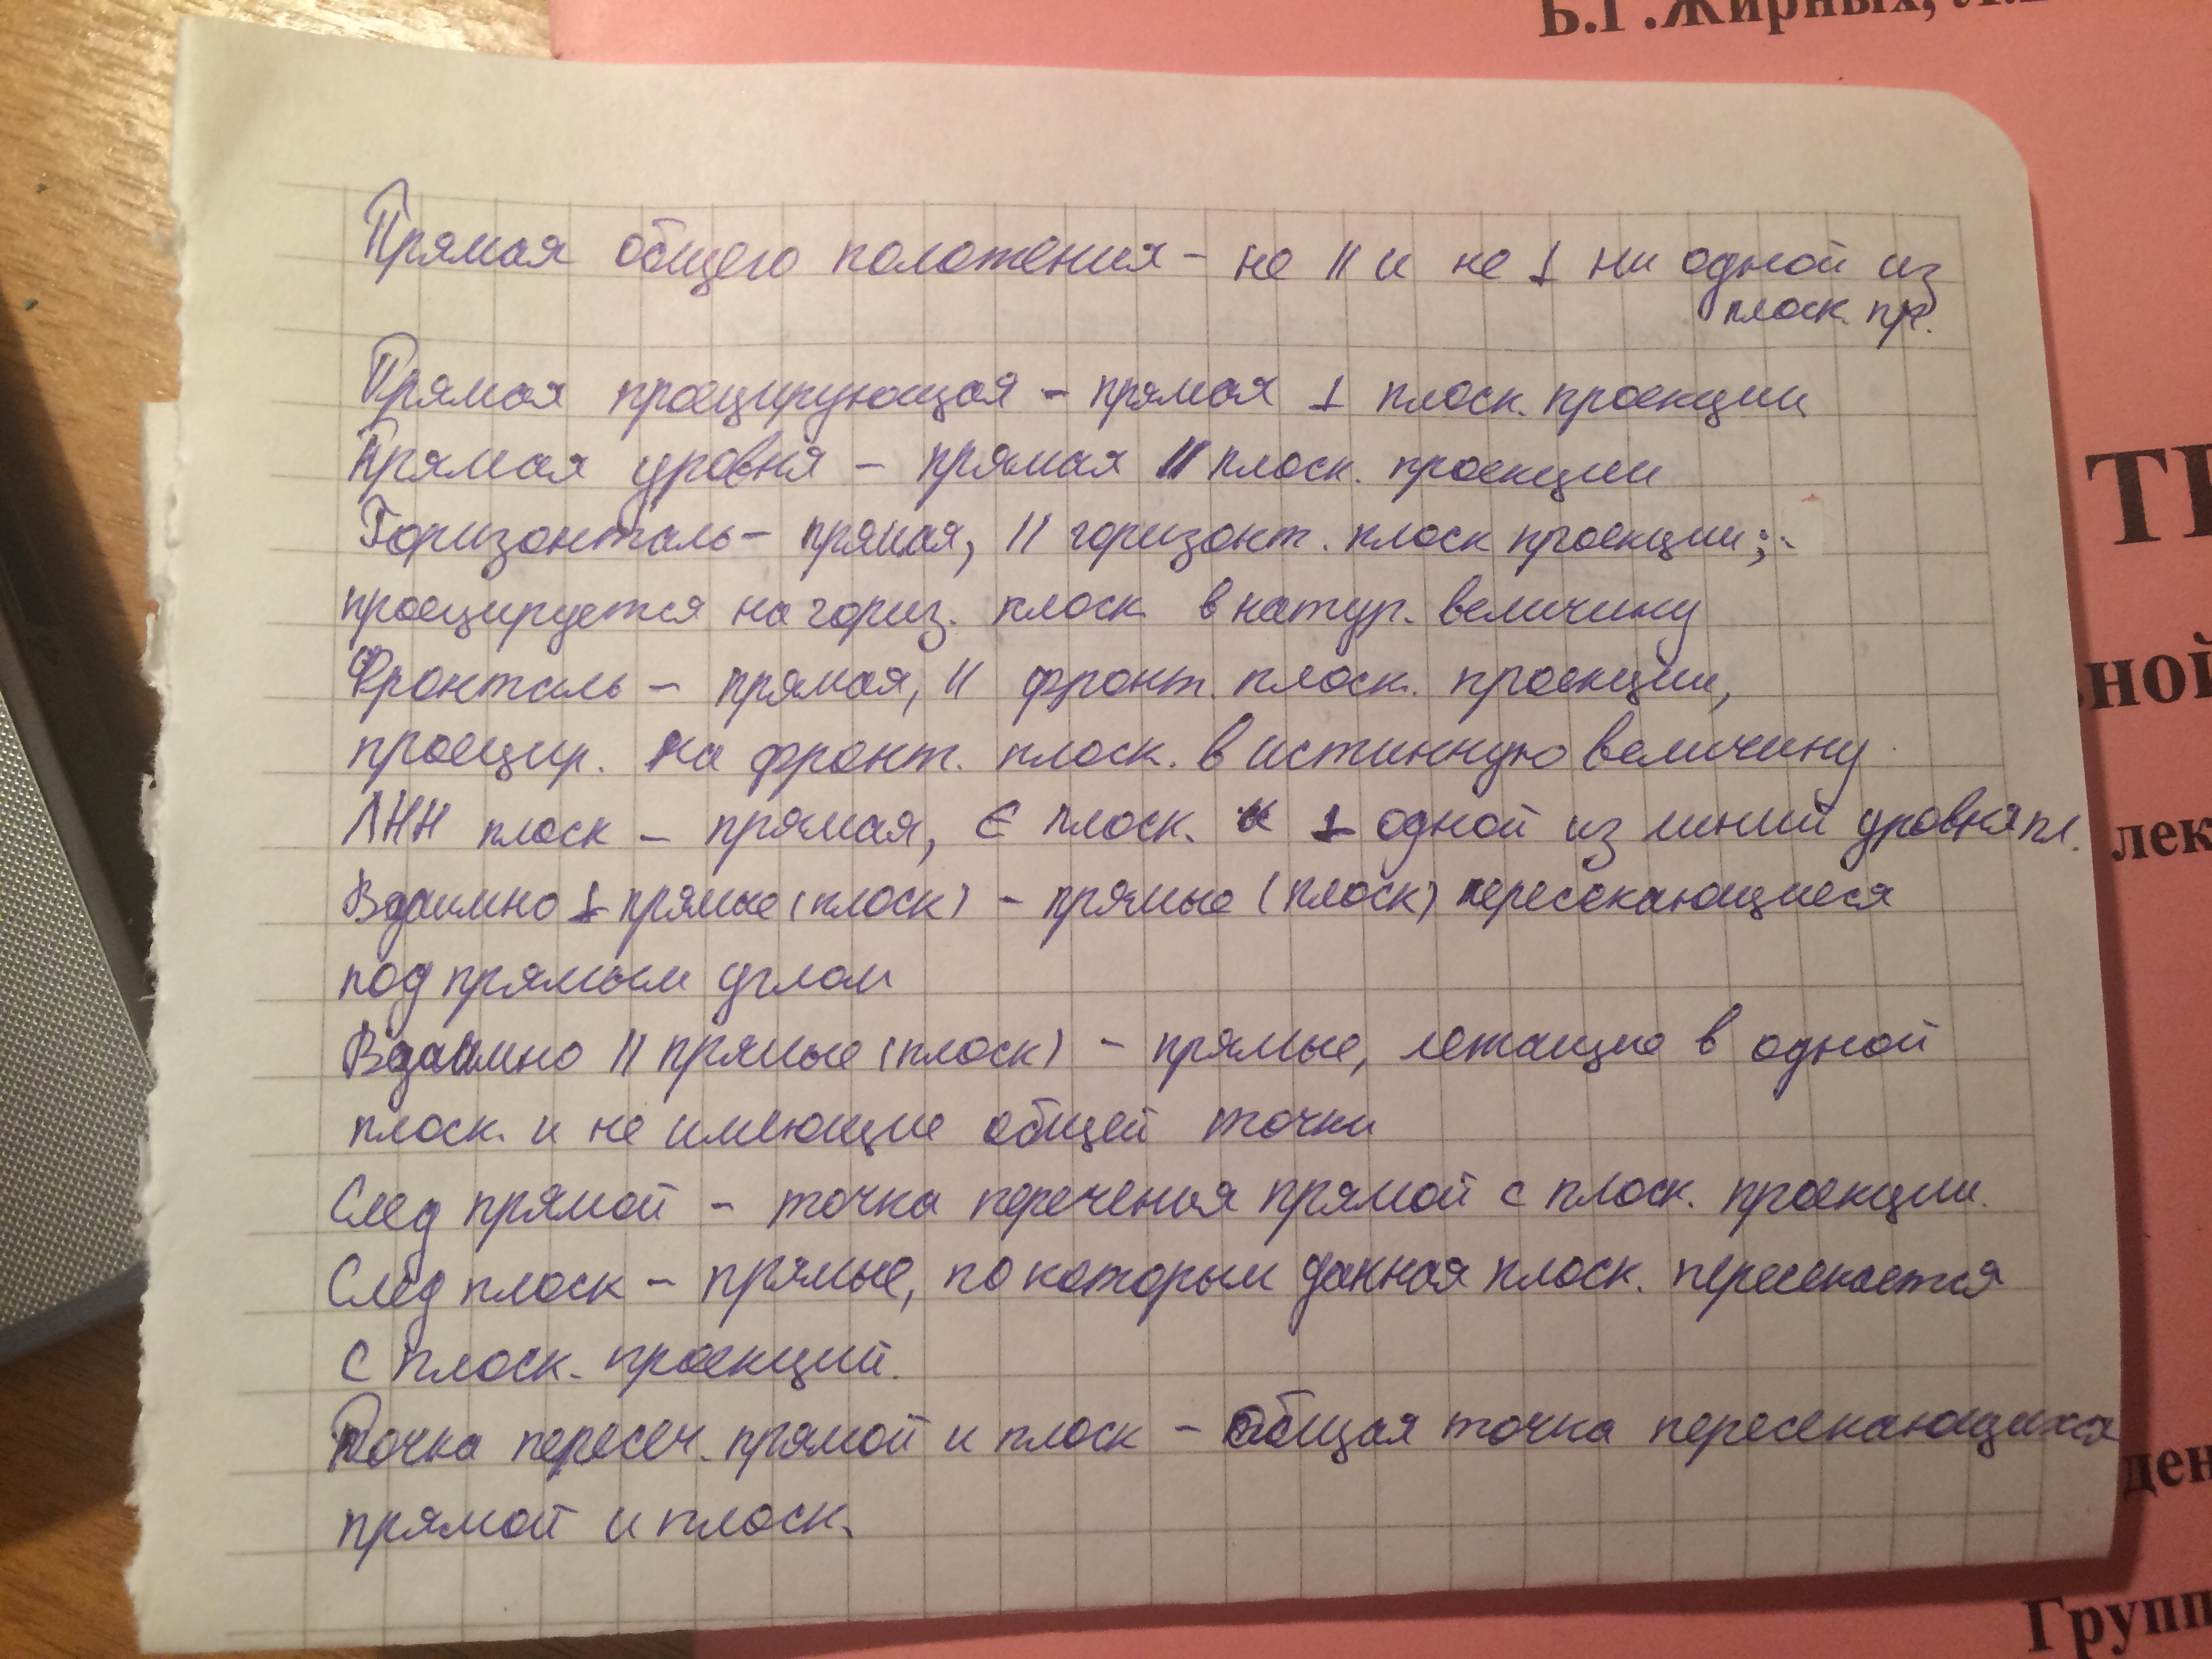 Б.Г.Жирных, Л.
Прямая общего положения - не || и не ⊥ ни одной из
плоск. пр.
Прямая проецирующая - прямая ⊥ плоск. проекции
Прямая уровня - прямая || плоск. проекции
Горизонталь - прямая, || горизонт. плоск проекции;
проецируется на гориз. плоск в натур. величину
Фронталь - прямая, || фронт. плоск. проекции,
проецир. на фронт. плоск. в истинную величину
ЛНН плоск - прямая, ∈ плоск. и ⊥ одной из линий уровня пл.
Взаимно ⊥ прямые (плоск) - прямые (плоск) пересекающиеся
под прямым углом
Взаимно || прямые (плоск) - прямые, лежащие в одной
плоск. и не имеющие общей точки
След прямой - точка перечения прямой с плоск. проекции.
След плоск - прямые, по которым данная плоск. пересекается
с плоск. проекций.
Точка пересеч. прямой и плоск - общая точка пересекающихся
прямой и плоск.
ТР
ьной
лек
ден
Групп